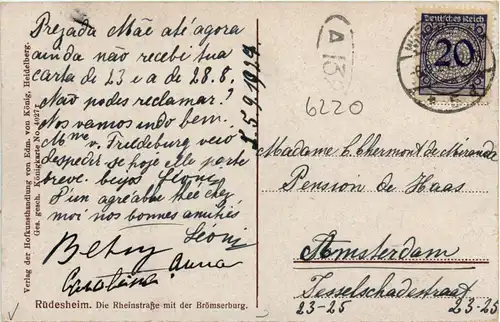 Prezada Mãe até agora
ainda não recebi tua
carta de 23 e a de 28.8.
Não podes reclamar?
Nos vamos indo bem.
Mme v. Frildeburg veio
despedir se hoje elle parte
breve. beijos Léonie
d'un agréable thé chez
moi nos bonnes amitiés
Léoni
Betsy
Carolina Anna
5.9.1924
Rüdesheim. Die Rheinstraße mit der Brömserburg.
Verlag der Hofkunsthandlung von Edm. von König, Heidelberg.
Ges. gesch. Königkarte No. 4027
A
13
6220
Deutsches Reich
20
Madame C. Chermont de Miranda
Pension de Haas
Amsterdam
Tesselschadestraat
23-25 23-25